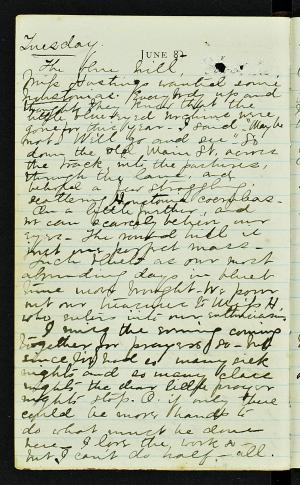 Tuesday.
JUNE 8
The blue hill,
Miss Hastings wanted some
houstonias. Every body up and
They know that the
little blue eyed were
gone for this year. I said, "Maybe
not I will and see" So
down the old Main St, across
the track, into the pastures,
through the lane, and
behold a few struggling,
scattering Houstonia coeruleas.
On a little further, and
we can scarcely believe our
eyes. The round hill is
just one perfect mass—
Such as our most
abounding days in bluet
time never brought. We pour
out our to Miss H.
who enters into our enthusiasm,
I miss the evening coming
together for prayers so — but
since I've had so many sick
nights and so many
nights the dear prayer
nights stop. O if only there
could be more hands to
do what must be done
here — I love the work so
but I can't do half — all.